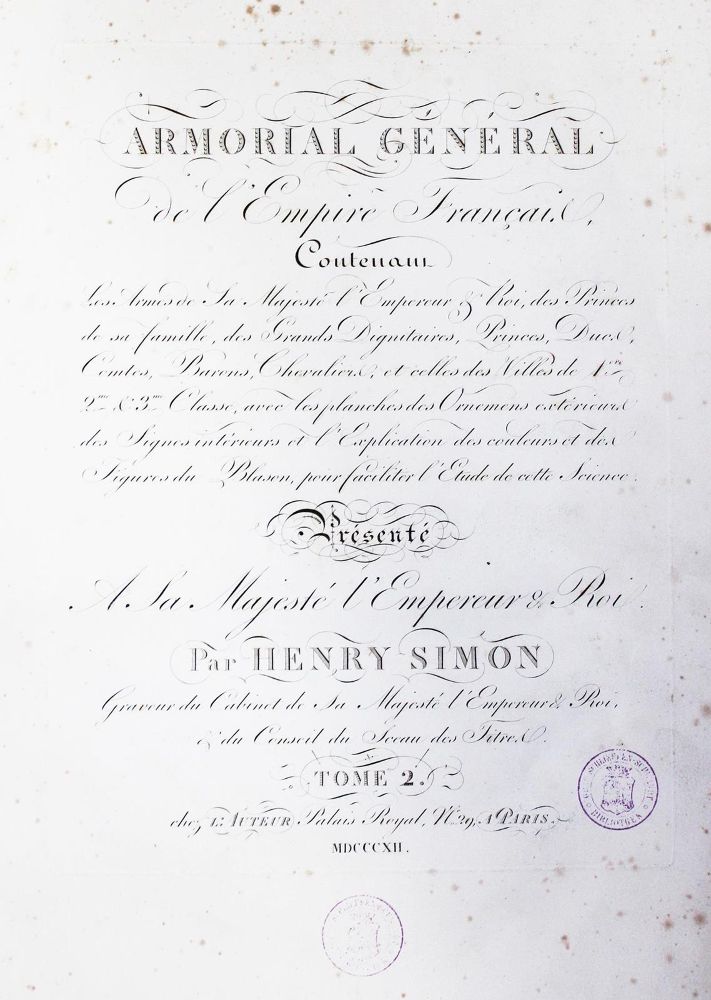 ARMORIAL GÉNÉRAL
de l'Empire Français,
Contenant
Les Armes de Sa Majesté l'Empereur & Roi, des Princes
de sa famille, des Grands Dignitaires, Princes, Ducs,
Comtes, Barons, Chevaliers, et celles des Villes de 1ère
2me & 3me Classe, avec les planches des Ornemens extérieurs
des Signes intérieurs et l'Explication des couleurs et des
Figures du Blason, pour faciliter l'Etude de cette Science.
Présenté
A Sa Majesté l'Empereur & Roi.
Par HENRY SIMON
Graveur du Cabinet de Sa Majesté l'Empereur & Roi,
& du Conseil du Sceau des Titres.
TOME 2.
chez L'AUTEUR Palais Royal, N° 29, A PARIS.
MDCCCXII.
BIBLIOTHEK